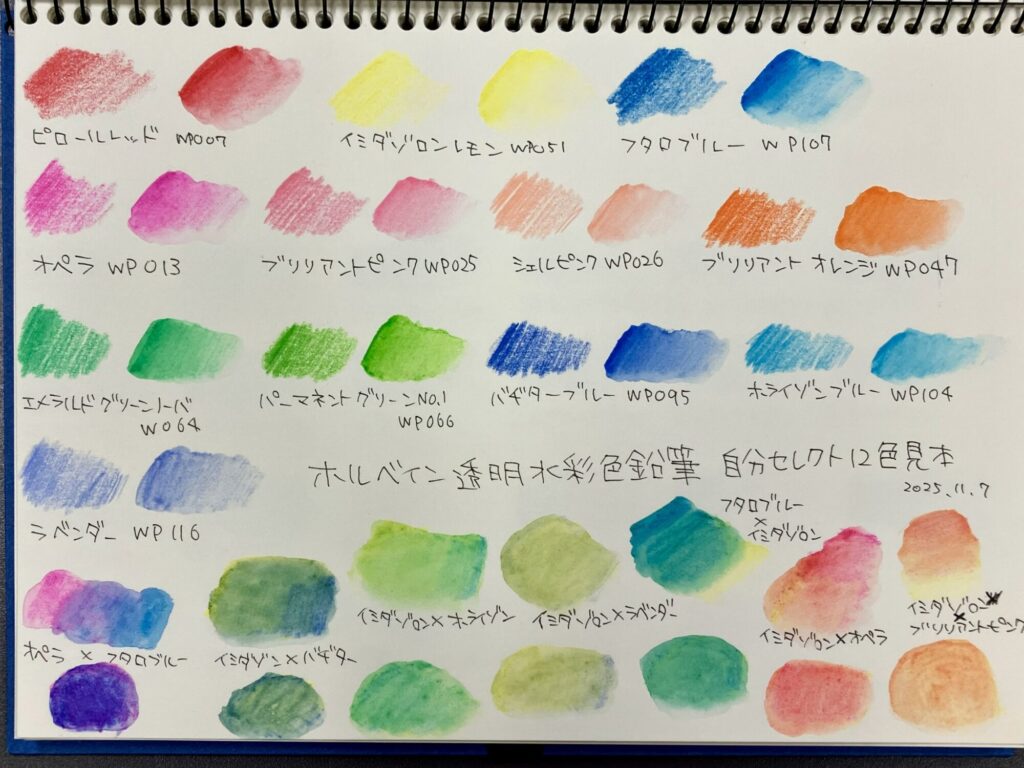 ピロールレッド WP007
イミダゾロンレモン WP051
フタロブルー WP107
オペラ WP013
ブリリアントピンク WP025
シェルピンク WP026
ブリリアント オレンジ WP047
エメラルドグリーンノーバ
W064
パーマネントグリーンNO.1
WP066
バヂターブルー WP095
ホライゾンブルー WP104
ラベンダー WP116
ホルベイン透明水彩色鉛筆 自分セレクト12色見本
2025.11.7
オペラ × フタロブルー
イミダゾン×バヂター
イミダゾロン×ホライゾン
イミダゾロン×ラベンダー
フタロブルー
×
イミダゾロン
イミダゾロン×オペラ
イミダゾロン
×
ブリリアントピンク